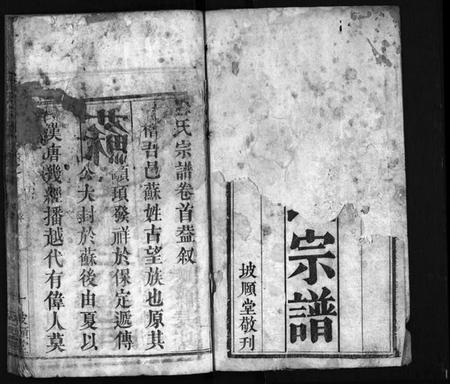 宗譜
坡願堂敬刊
氏宗譜卷首叙
稽吾邑蘇姓古望族也原其
蘇
頊發祥於保定遞傳
公大封於蘇後由夏以
漢唐幾經播越代有偉人莫